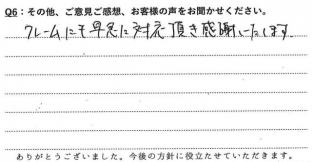 Q6：その他、ご意見ご感想、お客様の声をお聞かせください。
クレームにも早急に対応頂き感謝いたします
ありがとうございました。今後の方針に役立たせていただきます。